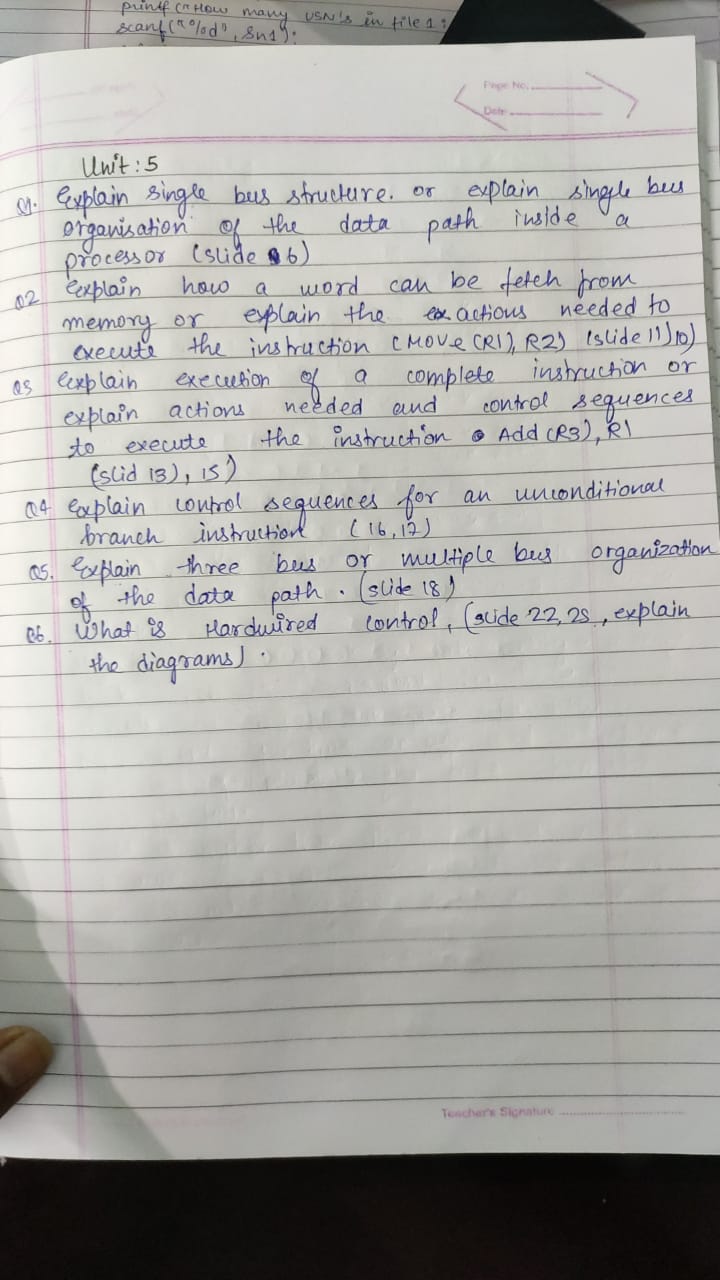 printf ("How many USN's in file 1:
scanf("%d", &n1);
Page No.
Date
Unit : 5
Q1. Explain single bus structure. or explain single bus
organisation of the data path inside a
processor (slide 6)
Q2 Explain how a word can be fetch from
memory or explain the actions needed to
execute the instruction (Move (R1), R2) (slide 11) 10)
Q3 Explain execution of a complete instruction or
explain actions needed and control sequences
to execute the instruction Add (R3), R1
(slid 13), 15)
Q4 Explain control sequences for an unconditional
branch instruction (16, 17)
Q5. Explain three bus or multiple bus organization
of the data path. (slide 18)
Q6. What is Hardwired control, (slide 22, 25, explain
the diagrams).
Teacher's Signature